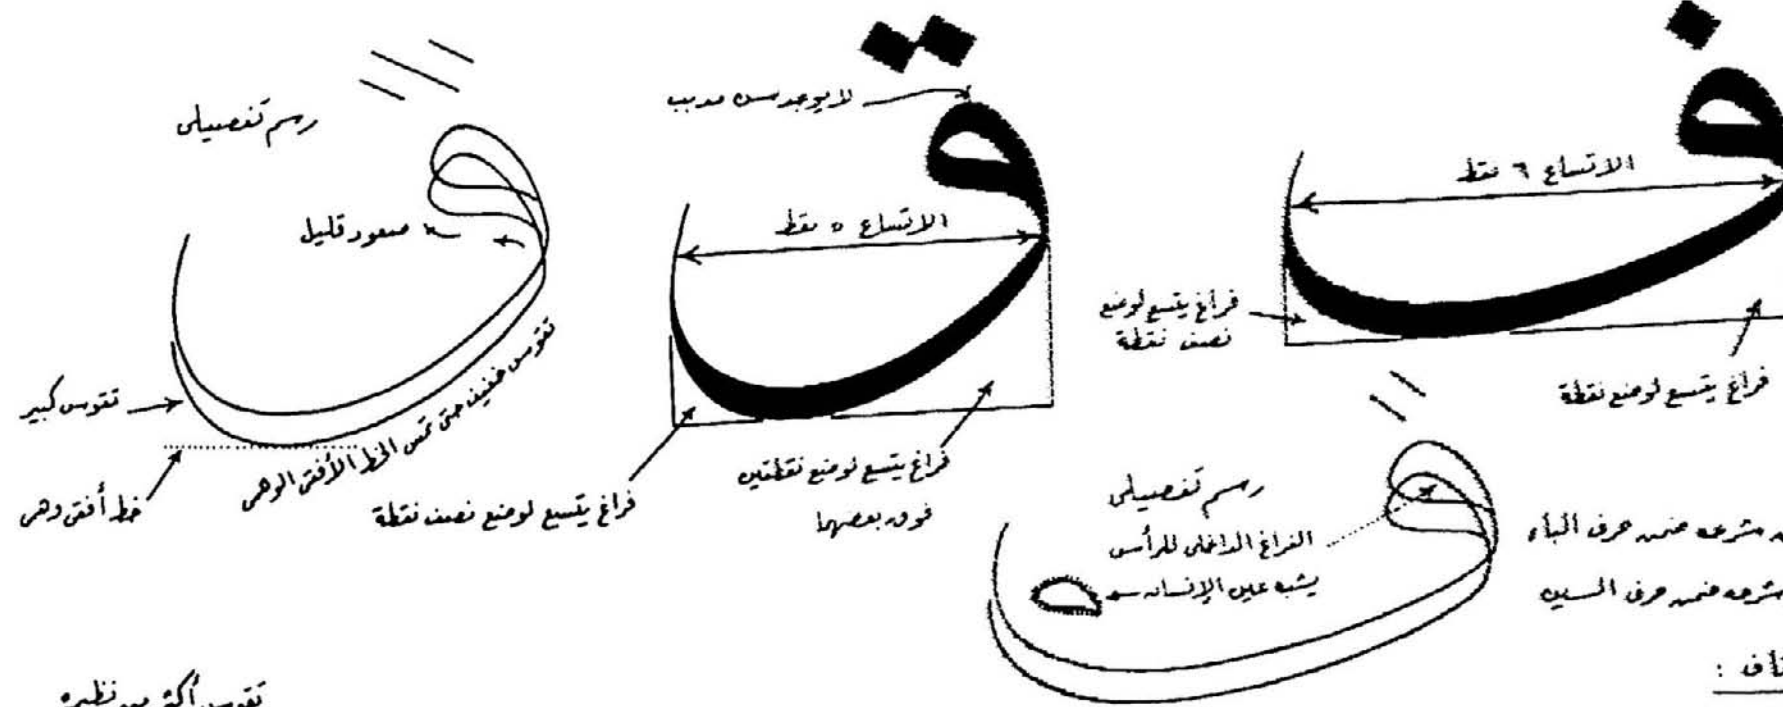 ف
الاتساع ٦ نقط
فراغ يتسع لوضع
نصف نقطة
فراغ يتسع لوضع نقطة
ق
لا يوجد سن مدبب
الاتساع ٥ نقط
فراغ يتسع لوضع نقطتين
فوق بعضهما
فراغ يتسع لوضع نصف نقطة
رسم تفصيلى
صعود قليل
تقوس خفيف حتى تمس الخط الأفقى الوهمى
تقوس كبير
خط أفقى وهمى
رسم تفصيلى
الفراغ الداخلى للرأس
يشبه عين الإنسان
شرحه ضمن حرف الباء
شرحه ضمن حرف السين
تقوس أكثر من نظيره